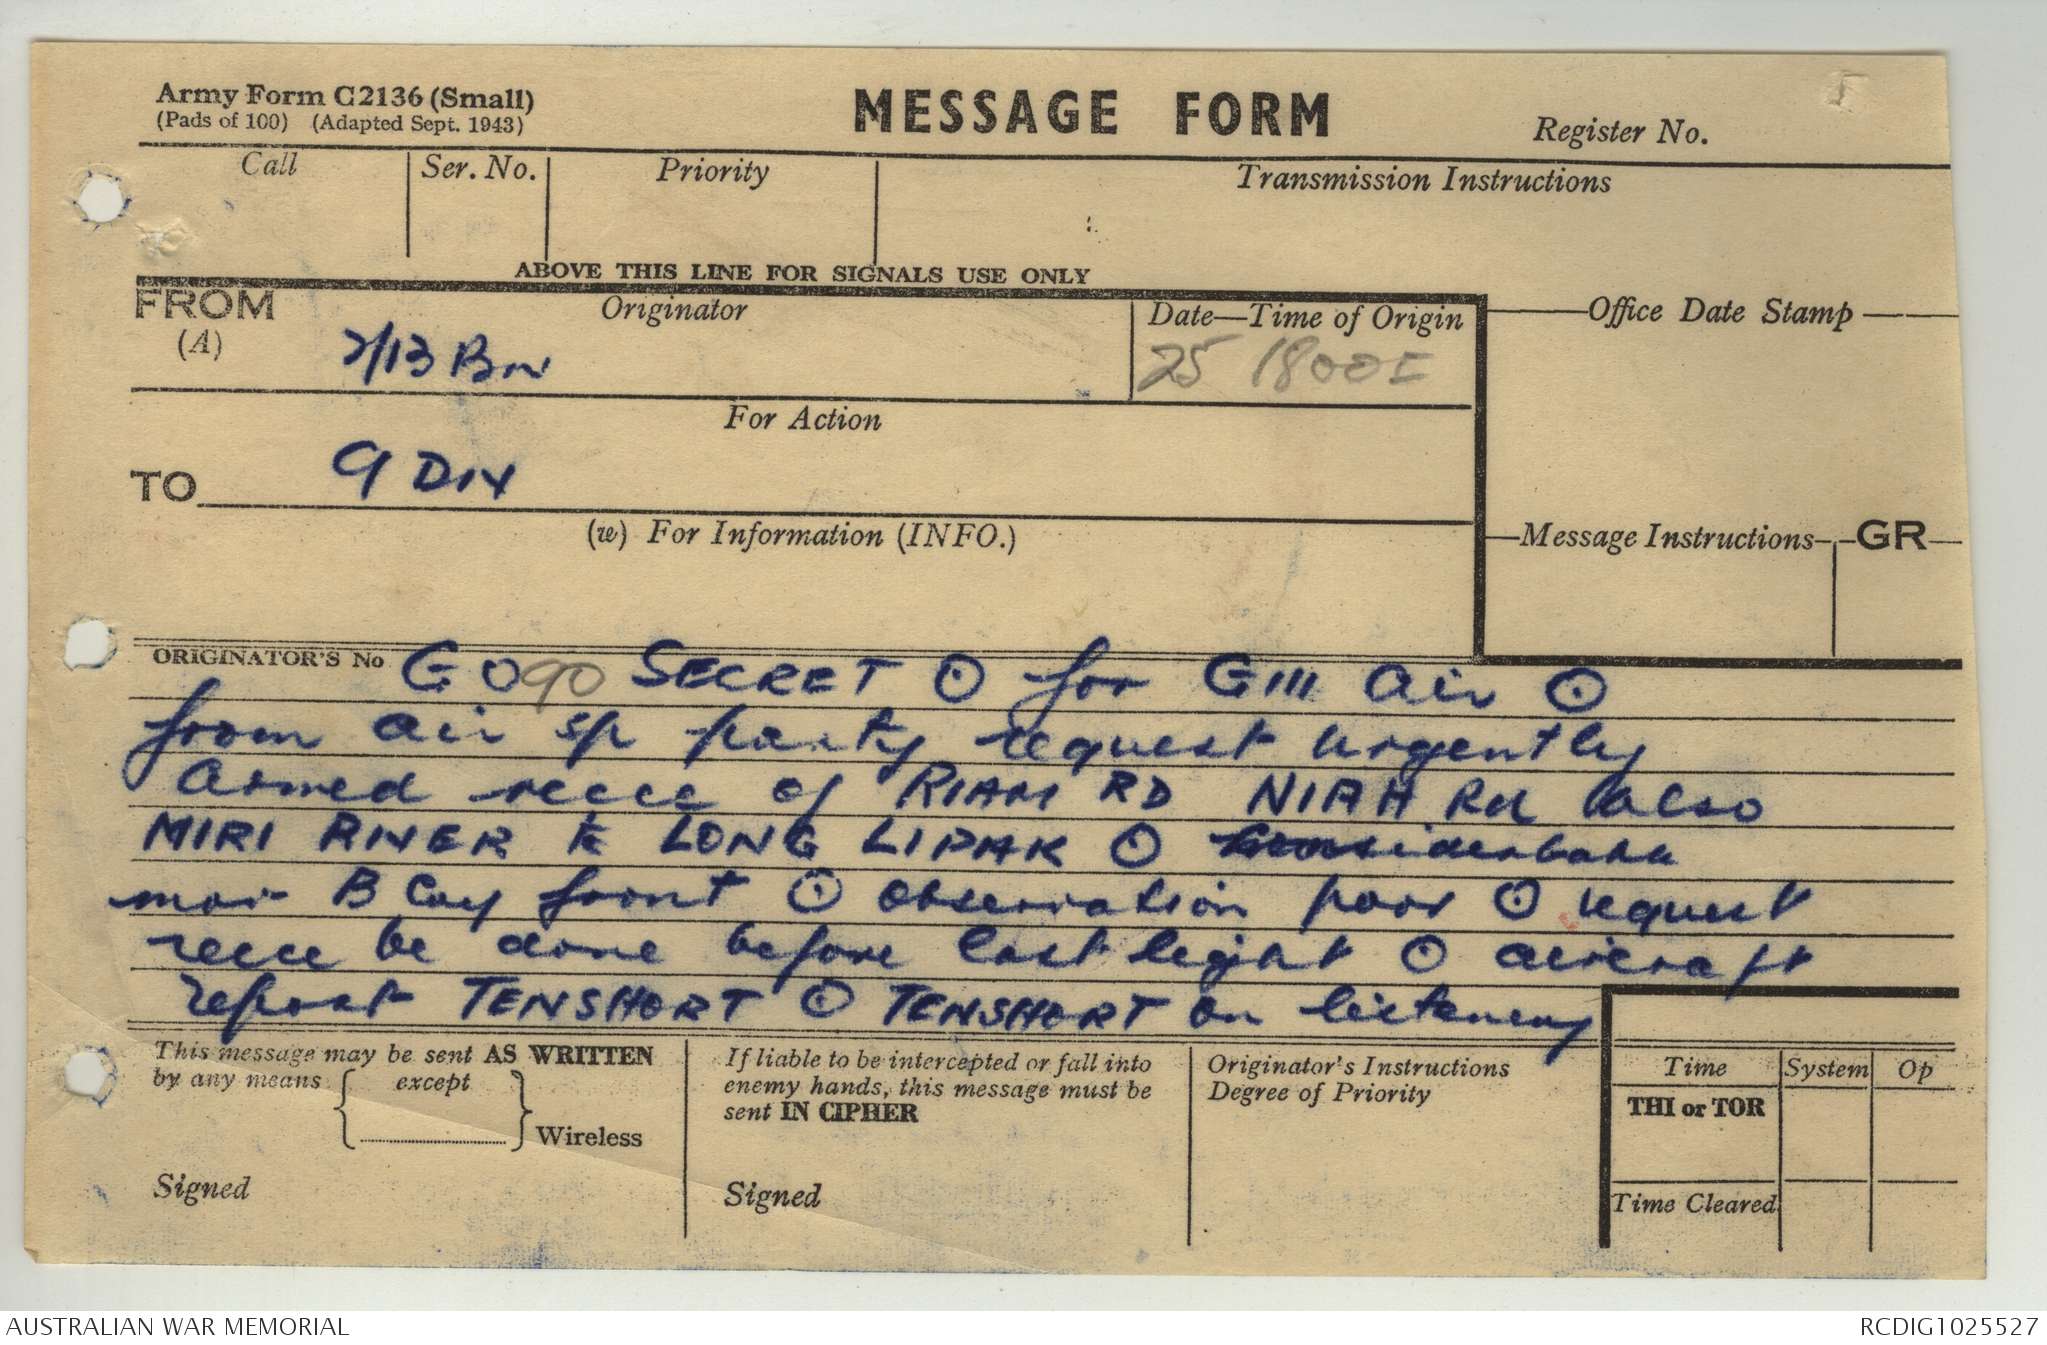 Army Form C2136 (Small)
(Pads of 100) (Adapted Sept. 1943)
MESSAGE FORM
Register No.
Call
Ser. No.
Priority
Transmission Instructions
ABOVE THIS LINE FOR SIGNALS USE ONLY
FROM
(A)
Originator
2/13 BN
Date—Time of Origin
25 1800I
Office Date Stamp
For Action
TO
9 DIV
(w) For Information (INFO.)
Message Instructions
GR
ORIGINATOR'S No
GO90 SECRET ⊙ for GIII Air ⊙
from air sp party request urgently
armed recce of RIAM RD NIAH Rd also
MIRI RIVER LONG LIPAK ⊙ considerable
mov B Coy front ⊙ observation poor ⊙ request
recce be done before last light ⊙ aircraft
report TENSHORT ⊙ TENSHORT on listening
This message may be sent AS WRITTEN
by any means
except
Wireless
Signed
If liable to be intercepted or fall into
enemy hands, this message must be
sent IN CIPHER
Signed
Originator's Instructions
Degree of Priority
Time
System
Op
THI or TOR
Time Cleared
AUSTRALIAN WAR MEMORIAL
RCDIG1025527